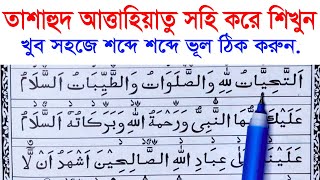 তাশাহুদ আত্তাহিয়াতু সহি করে শিখুন
খুব সহজে শব্দে শব্দে ভূল ঠিক করুন.
اَلتَّحِيَّاتُ لِلّٰهِ وَالصَّلَوَاتُ وَالطَّيِّبَاتُ اَلسَّلَامُ
عَلَيْكَ اَيُّهَا النَّبِيُّ وَرَحْمَةُ اللّٰهِ وَبَرَكَاتُهُ اَلسَّلَامُ
عَلَيْنَا عِبَادِ اللّٰهِ الصَّالِحِيْنَ اَشْهَدُ اَنْ لَّا